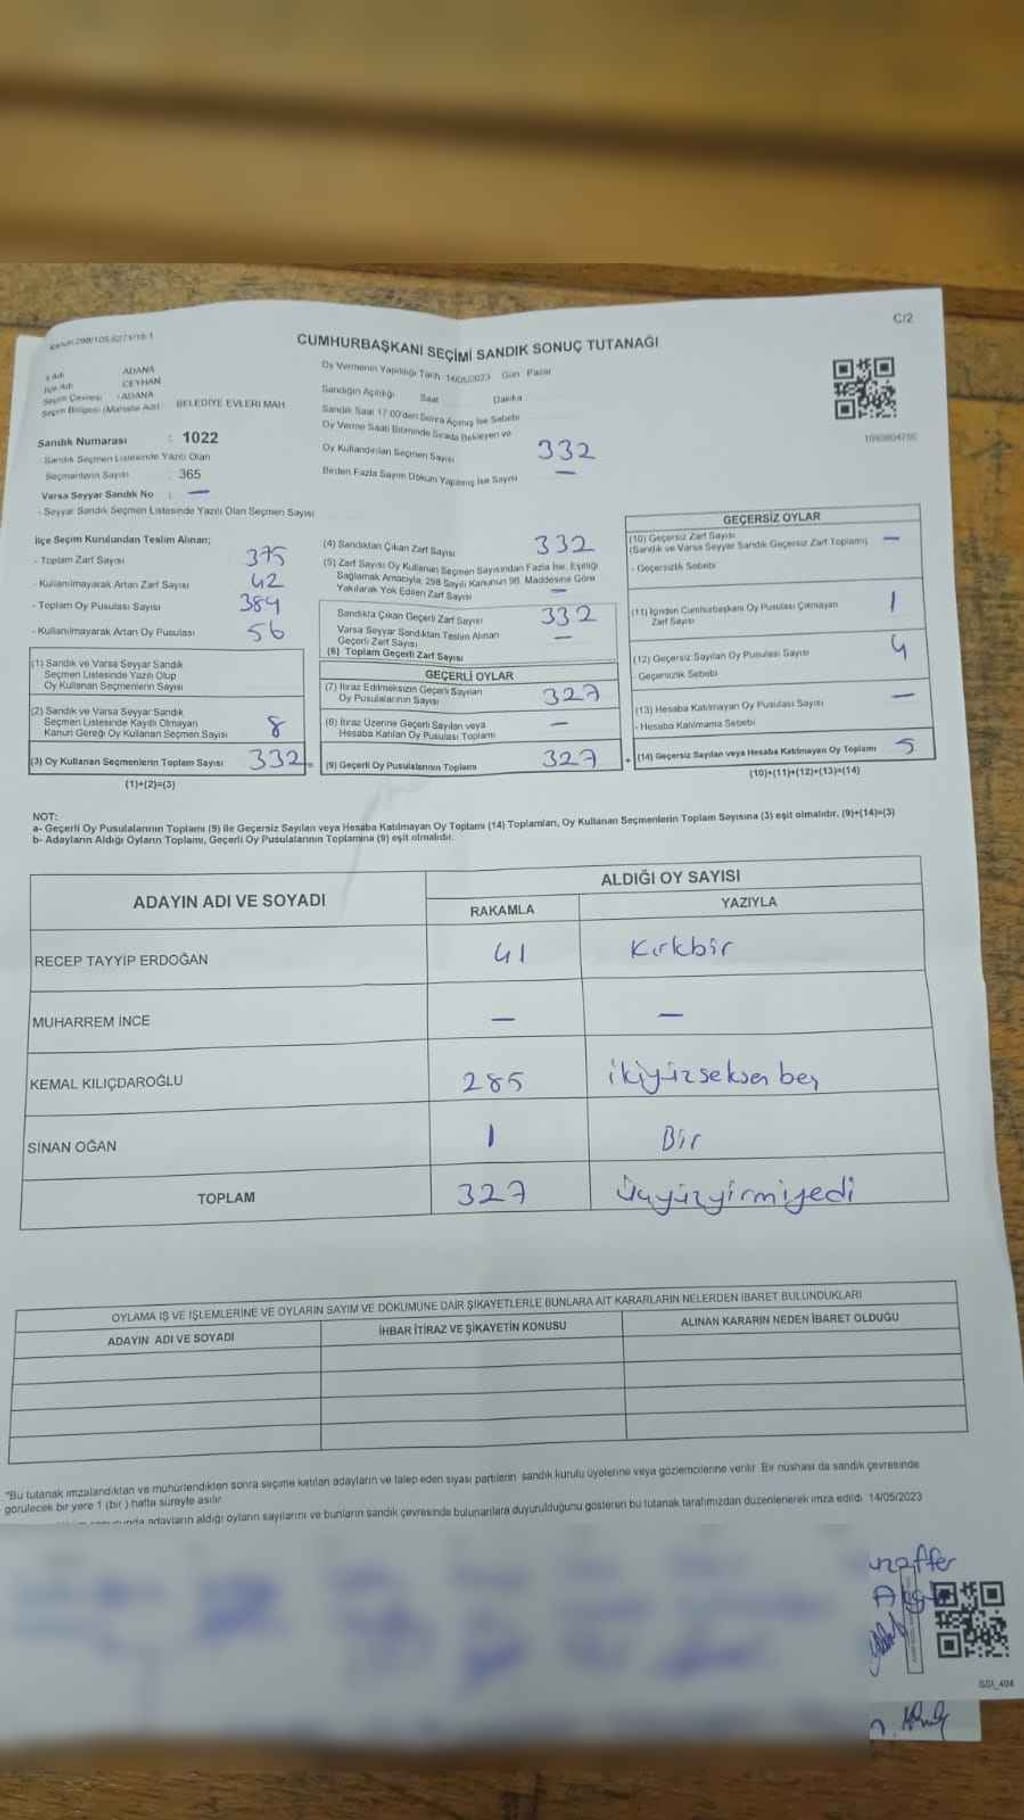 C/2
CUMHURBAŞKANI SEÇİMİ SANDIK SONUÇ TUTANAĞI
İl Adı ADANA
İlçe Adı CEYHAN
Seçim Çevresi : ADANA
Seçim Bölgesi (Mahalle Adı) BELEDİYE EVLERİ MAH
Sandık Numarası : 1022
Sandık Seçmen Listesinde Yazılı Olan
Seçmenlerin Sayısı : 365
Varsa Seyyar Sandık No : —
- Seyyar Sandık Seçmen Listesinde Yazılı Olan Seçmen Sayısı
Oy Vermenin Yapıldığı Tarih 14/05/2023 Gün Pazar
Sandığın Açıldığı Saat Dakika
Sandık Saat 17.00'den Sonra Açılmış İse Sebebi
Oy Verme Saati Bitiminde Sırada Bekleyen ve
Oy Kullandırılan Seçmen Sayısı 332
Birden Fazla Sayım Döküm Yapılmış İse Sayısı —
İlçe Seçim Kurulundan Teslim Alınan;
- Toplam Zarf Sayısı 375
- Kullanılmayarak Artan Zarf Sayısı 42
- Toplam Oy Pusulası Sayısı 384
- Kullanılmayarak Artan Oy Pusulası 56
(1) Sandık ve Varsa Seyyar Sandık
Seçmen Listesinde Yazılı Olup
Oy Kullanan Seçmenlerin Sayısı
(2) Sandık ve Varsa Seyyar Sandık
Seçmen Listesinde Kayıtlı Olmayan
Kanun Gereği Oy Kullanan Seçmen Sayısı 8
(3) Oy Kullanan Seçmenlerin Toplam Sayısı 332 =
(1)+(2)=(3)
(4) Sandıktan Çıkan Zarf Sayısı 332
(5) Zarf Sayısı Oy Kullanan Seçmen Sayısından Fazla İse, Eşitliği
Sağlamak Amacıyla, 298 Sayılı Kanunun 98. Maddesine Göre
Yakılarak Yok Edilen Zarf Sayısı —
Sandıkta Çıkan Geçerli Zarf Sayısı 332
Varsa Seyyar Sandıktan Teslim Alınan
Geçerli Zarf Sayısı —
(6) Toplam Geçerli Zarf Sayısı
GEÇERLİ OYLAR
(7) İtiraz Edilmeksizin Geçerli Sayılan
Oy Pusulalarının Sayısı 327
(8) İtiraz Üzerine Geçerli Sayılan veya
Hesaba Katılan Oy Pusulası Toplamı —
(9) Geçerli Oy Pusulalarının Toplamı 327 +
GEÇERSİZ OYLAR
(10) Geçersiz Zarf Sayısı
(Sandık ve Varsa Seyyar Sandık Geçersiz Zarf Toplamı) —
- Geçersizlik Sebebi
(11) İçinden Cumhurbaşkanı Oy Pusulası Çıkmayan
Zarf Sayısı 1
(12) Geçersiz Sayılan Oy Pusulası Sayısı 4
Geçersizlik Sebebi
(13) Hesaba Katılmayan Oy Pusulası Sayısı —
- Hesaba Katılmama Sebebi
(14) Geçersiz Sayılan veya Hesaba Katılmayan Oy Toplamı 5
(10)+(11)+(12)+(13)=(14)
NOT:
a- Geçerli Oy Pusulalarının Toplamı (9) ile Geçersiz Sayılan veya Hesaba Katılmayan Oy Toplamı (14) Toplamları, Oy Kullanan Seçmenlerin Toplam Sayısına (3) eşit olmalıdır. (9)+(14)=(3)
b- Adayların Aldığı Oyların Toplamı, Geçerli Oy Pusulalarının Toplamına (9) eşit olmalıdır.
ADAYIN ADI VE SOYADI ALDIĞI OY SAYISI
RAKAMLA YAZIYLA
RECEP TAYYİP ERDOĞAN 41 Kırkbir
MUHARREM İNCE — —
KEMAL KILIÇDAROĞLU 285 ikiyüzseksenbeş
SİNAN OĞAN 1 Bir
TOPLAM 327 Üçyüzyirmiyedi
OYLAMA İŞ VE İŞLEMLERİNE VE OYLARIN SAYIM VE DÖKÜMÜNE DAİR ŞİKAYETLERLE BUNLARA AİT KARARLARIN NELERDEN İBARET BULUNDUKLARI
ADAYIN ADI VE SOYADI İHBAR İTİRAZ VE ŞİKAYETİN KONUSU ALINAN KARARIN NEDEN İBARET OLDUĞU
"Bu tutanak imzalandıktan ve mühürlendikten sonra seçime katılan adayların ve talep eden siyasi partilerin sandık kurulu üyelerine veya gözlemcilerine verilir. Bir nüshası da sandık çevresinde
görülecek bir yere 1 (bir) hafta süreyle asılır
adayların aldığı oyların sayılarını ve bunların sandık çevresinde bulunanlara duyurulduğunu gösteren bu tutanak tarafımızdan düzenlenerek imza edildi. 14/05/2023